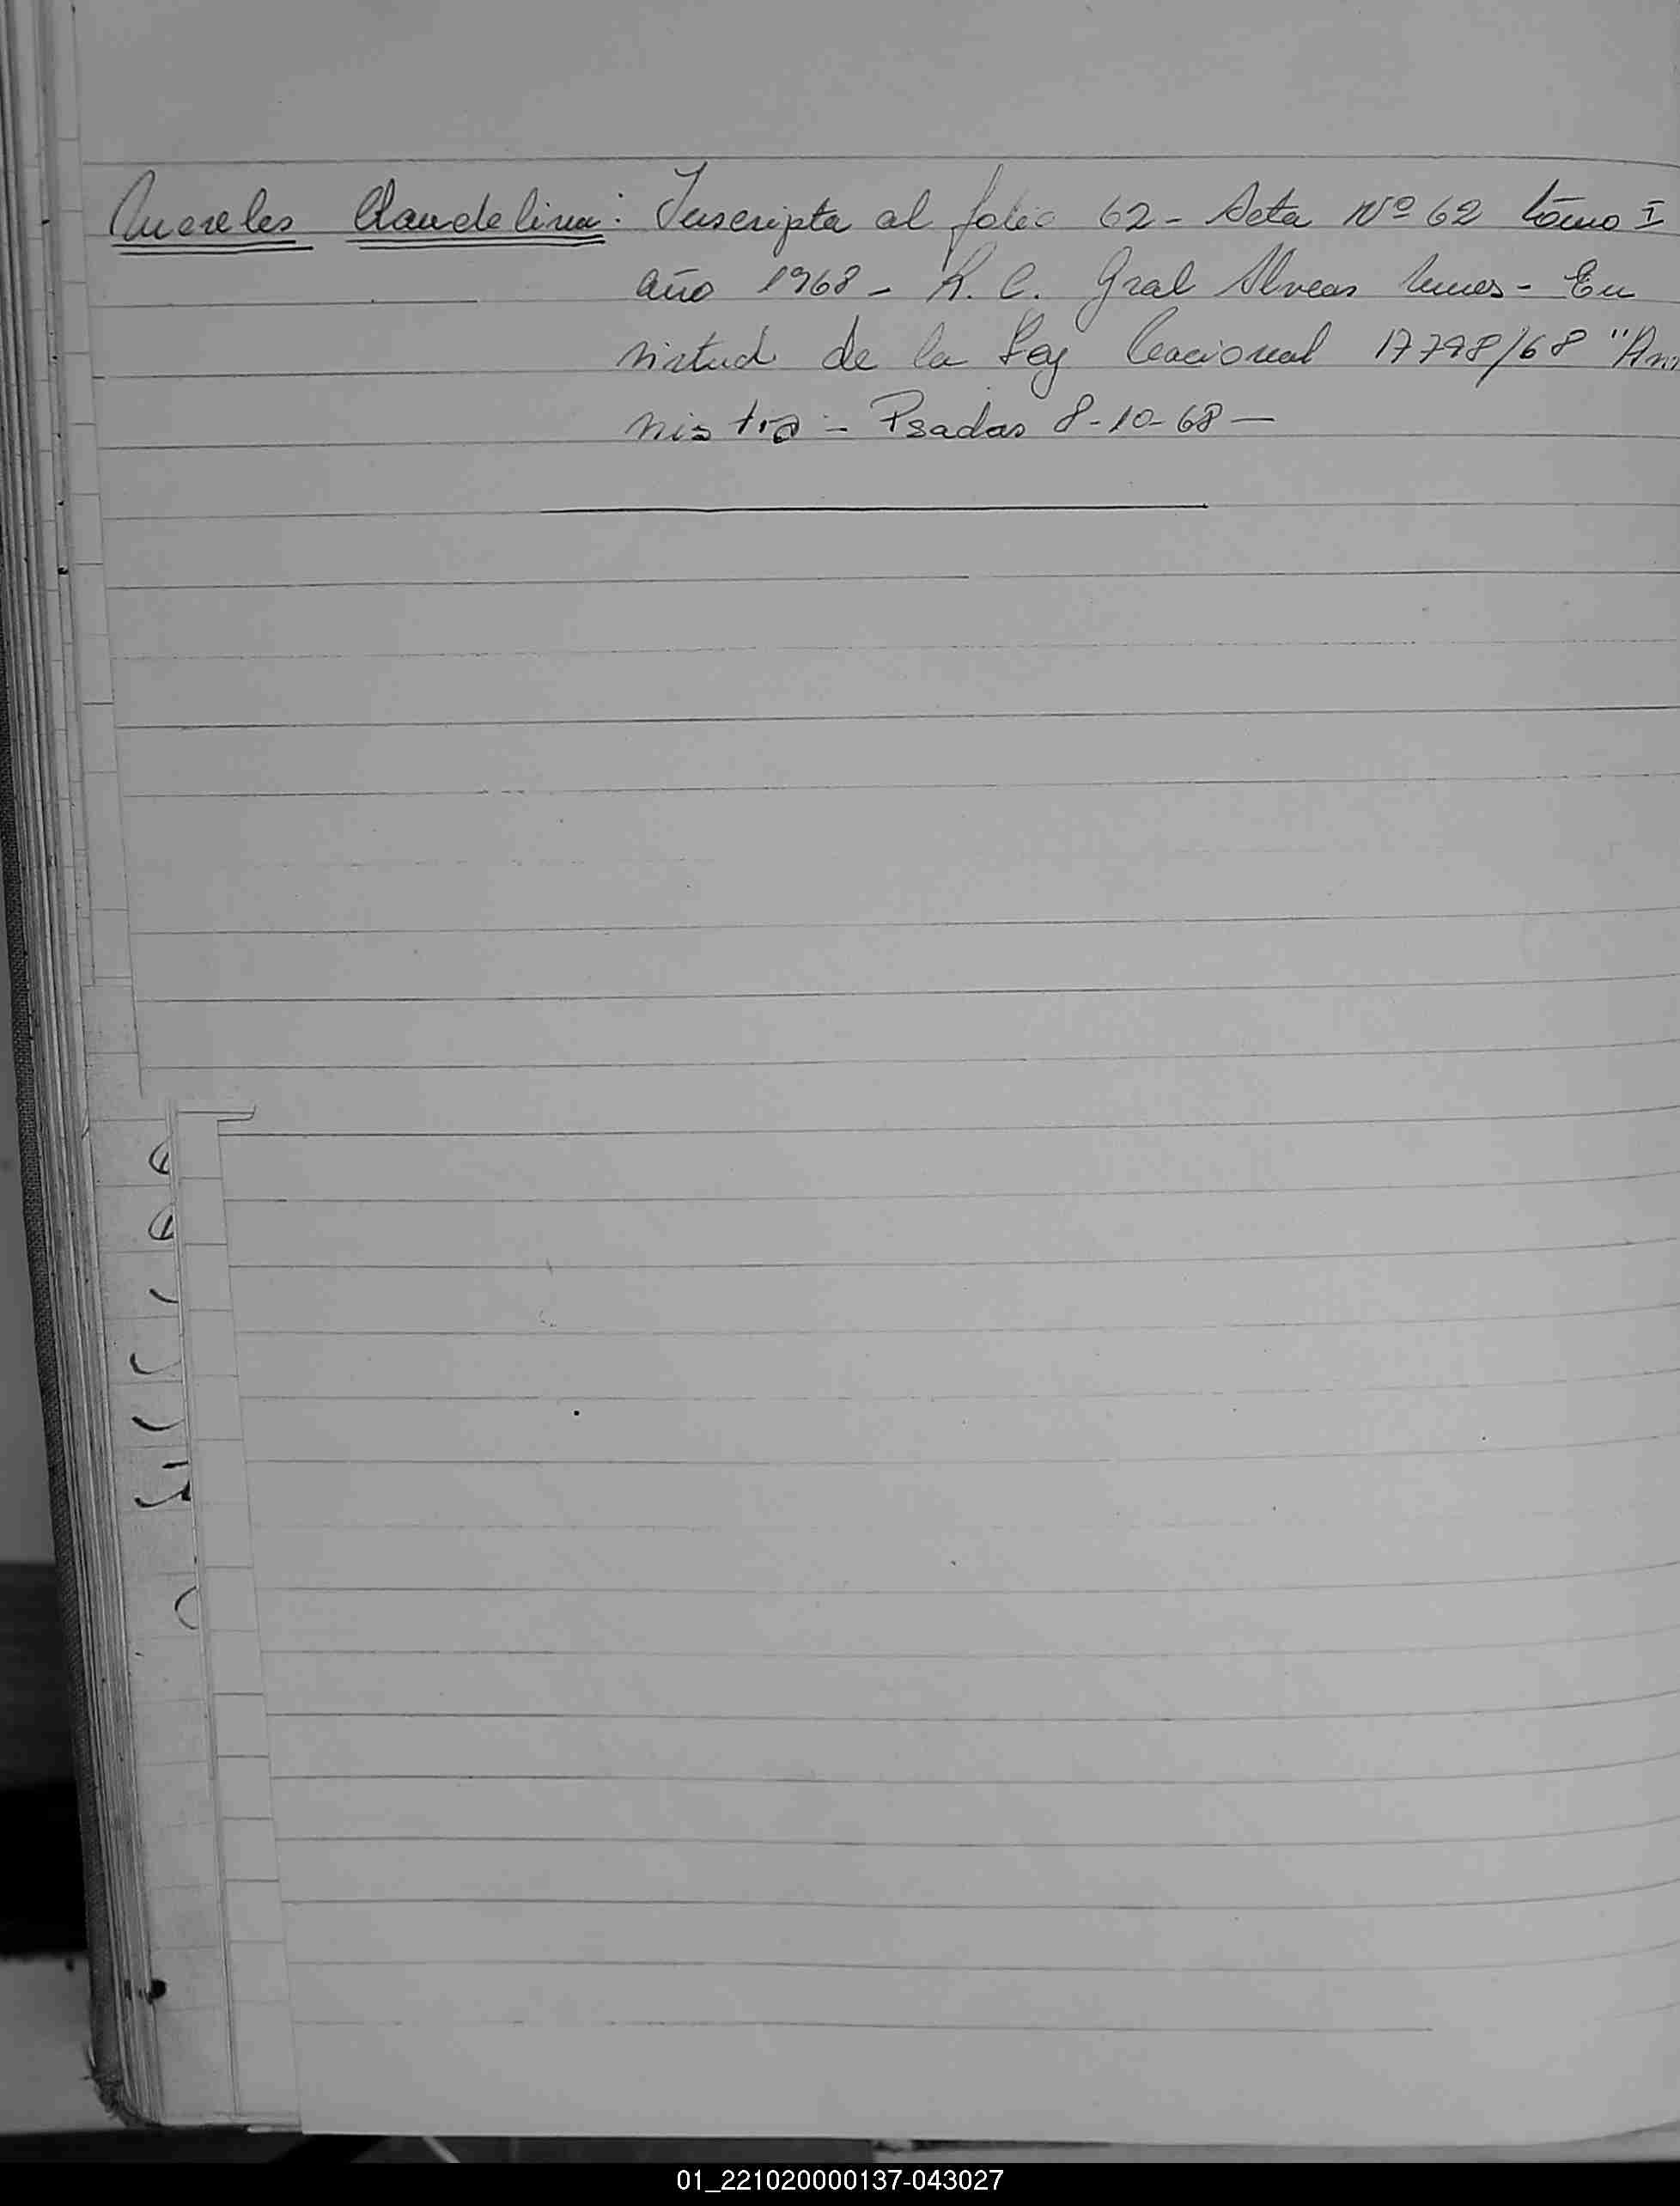 Claudelina: Inscripta al folio 62- Acta Nº 62 tomo I
año 1968- R. C. Gral Alvear - En
virtud de la Ley Nacional 17798/68 "Am
nistia- Psadas 8-10-68-
01_221020000137-043027